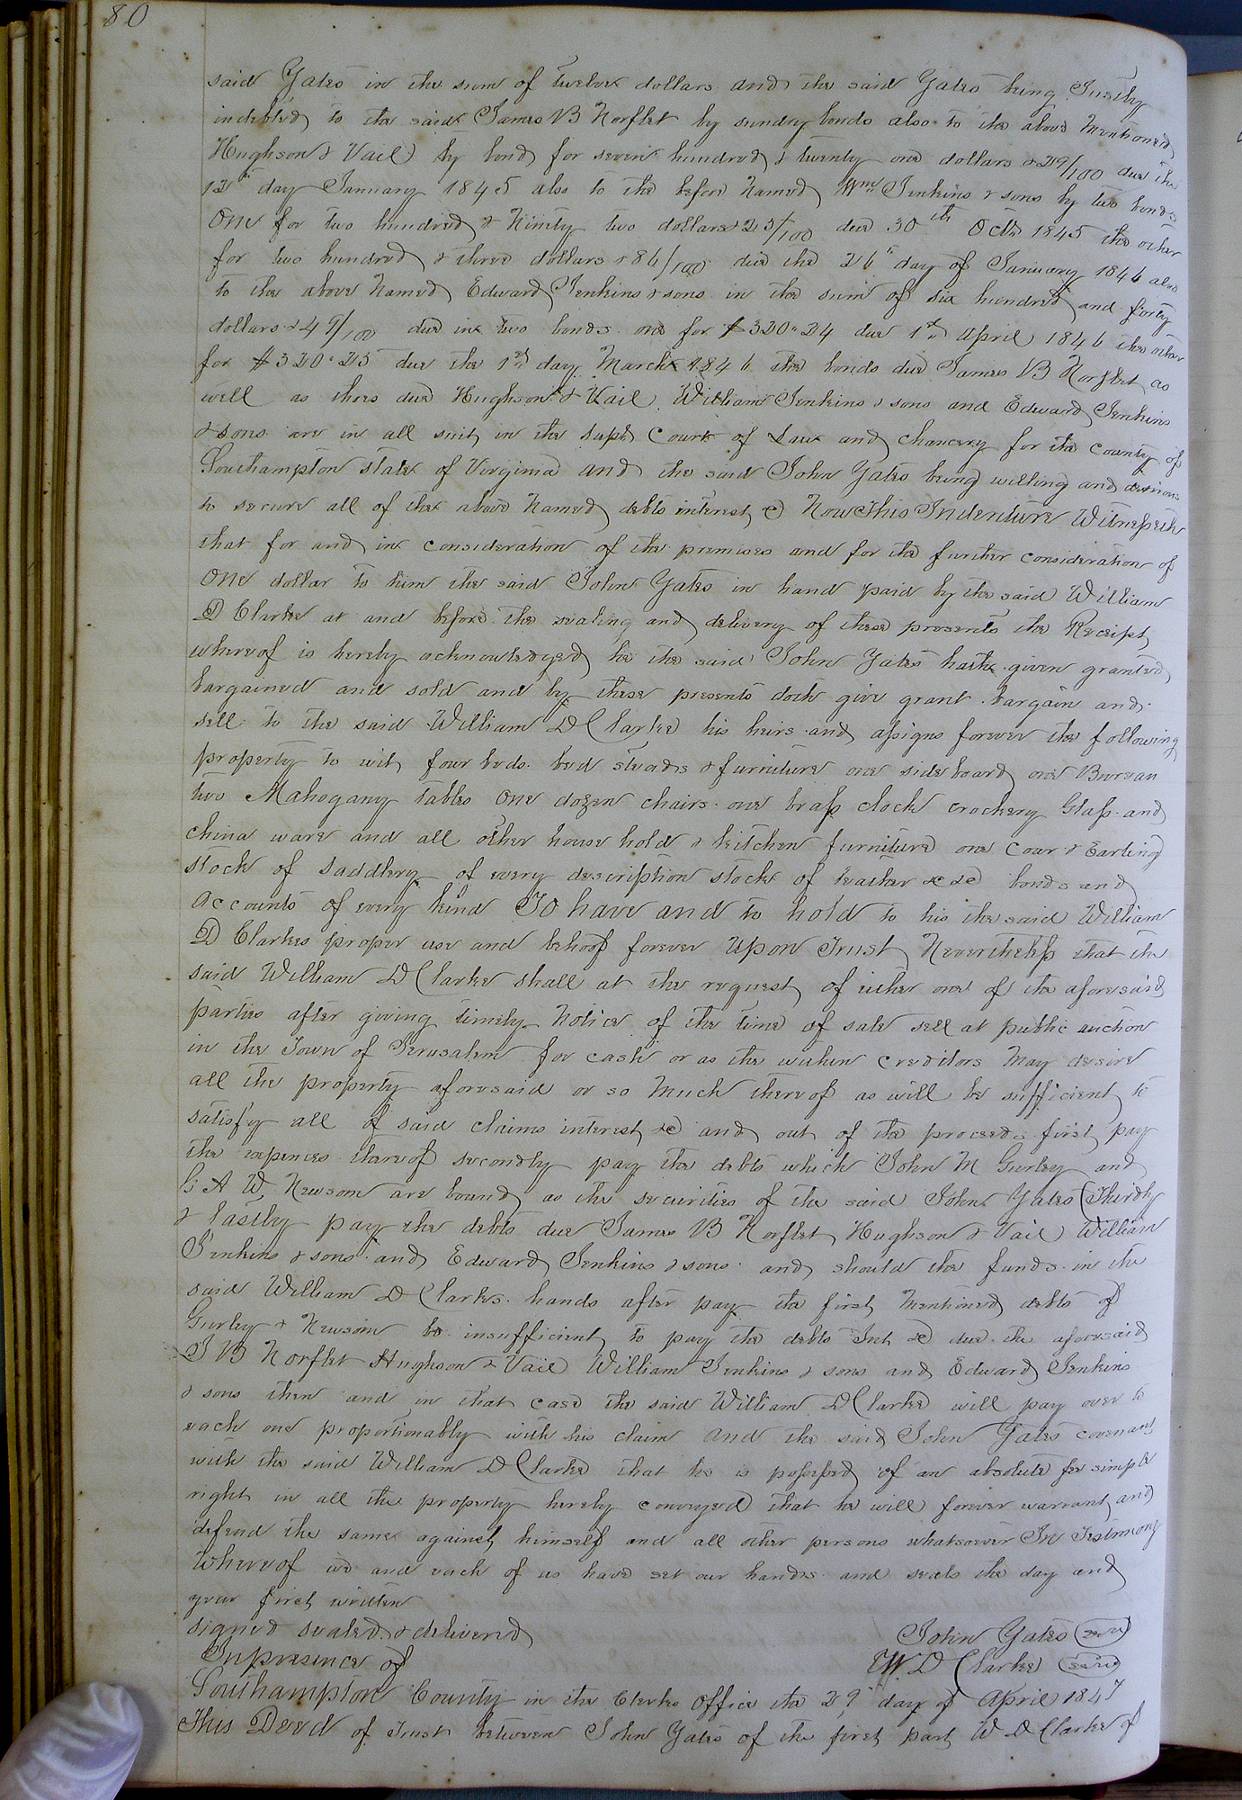 80
said Yates in the sum of twelve dollars and the said Yates being Justly
indebted to the said James B Norflet by sundry bonds also to the above mentioned
Hughson & Vail by bond for seven hundred & twenty one dollars & 29/100 due the
12th day January 1845 also to the before Named Wm Jenkins & sons by two bonds
One for two hundred & Ninety two dollars & 25/100 due 30th Octr 1845 the other
for two hundred & three dollars & 86/100 due the 26th day of January 1846 also
to the above Named Edward Jenkins & sons in the sum of six hundred and forty
dollars & 49/100 due in two bonds one for $320.24 due 1st April 1846 the other
for $320.25 due the 1st day March 1846 the bonds due James B Norflet as
well as those due Hughson & Vail William Jenkins & sons and Edward Jenkins
& sons are in all suit in the supr Court of Law and chancery for the County of
Southampton state of Virginia and the said John Yates being willing and desirous
to secure all of the above Named debts interest &c Now This Indenture Witnesseth
that for and in consideration of the premises and for the further consideration of
One dollar to him the said John Yates in hand paid by the said William
D Clarke at and before the sealing and delivery of these presents the Receipt
whereof is hereby acknowledged he the said John Yates hath given granted
bargained and sold and by these presents doth give grant bargain and
sell to the said William D Clarke his heirs and assigns forever the following
property to wit four beds bed steads & furniture one side board one Bureau
two Mahogany tables One dozen chairs one brass clock crockery Glass and
china ware and all other house hold & kitchen furniture one Cow &
stock of saddlery of every description stock of leather &c &c bonds and
accounts of every kind To have and to hold to his the said William
D Clarkes proper use and behoof forever Upon Trust Nevertheless that the
said William D Clarke shall at the request of either one of the aforesaid
parties after giving timely Notice of the time of sale sell at public auction
in the Town of Jerusalem for cash or as the within creditors May desire
all the property aforesaid or so Much thereof as will be sufficient to
satisfy all of said claims interest &c and out of the proceeds first pay
the expences thereof secondly pay the debts which John M Gurley and
G A W Newsom are bound as the securities of the said John Yates (Thirdly
& lastly pay the debts due James B Norflet Hughson & Vail William
Jenkins & sons and Edward Jenkins & sons and should the funds in the
said William D Clarkes hands after pay the first Mentioned debts of
Gurley & Newsom be insufficient to pay the debts Int &c due the aforesaid
J B Norflet Hughson & Vail William Jenkins & sons and Edward Jenkins
& sons then and in that case the said William D Clarke will pay over to
each one proportionably with his claim and the said John Yates covenants
with the said William D Clarke that he is possessed of an absolute fee simple
right in all the property hereby conveyed that he will forever warrant and
defend the same against himself and all other persons whatsoever In Testimony
Whereof we and each of us have set our hands and seals the day and
year first written
signed sealed & delivered John Yates (seal)
In presence of W. D Clarke (seal)
Southampton County in the Clerks Office the 29th day of April 1847
This Deed of Trust between John Yates of the first part W D Clarke of